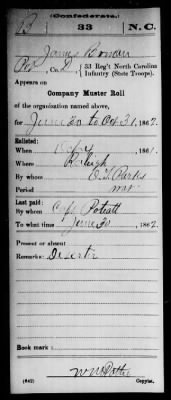 (Confederate.)
B 33 N.C.
James
Co. D, 33 Reg't North Carolina
Infantry (State Troops).
Appears on
Company Muster Roll
of the organisation named above,
for June 30 to Oct 31, 1862.
Enlisted:
When 186 .
Where Raleigh
By whom O. L. Parks
Period war
Last paid:
By whom Capt
To what time June 30, 1862.
Present or absent
Remarks: Deserter
Book mark:
(642) Copyist.